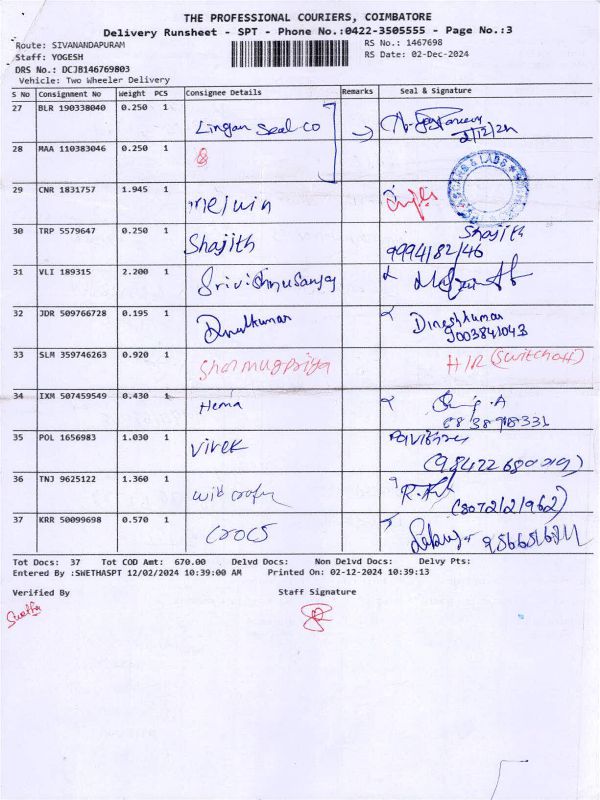 THE PROFESSIONAL COURIERS, COIMBATORE
Delivery Runsheet - SPT - Phone No.:0422-3505555 - Page No.:3
Route: SIVANANDAPURAM
RS No.: 1467698
Staff: YOGESH
RS Date: 02-Dec-2024
DRS No.: DCJB146769803
Vehicle: Two Wheeler Delivery
S No Consignment No Weight PCS Consignee Details Remarks Seal & Signature
27 BLR 190338040 0.250 1 Lingan Seal Co 2/12/24
28 MAA 110383046 0.250 1
29 CNR 1831757 1.945 1 Melwin
30 TRP 5579647 0.250 1 Shajith Shajith
9994182146
31 VLI 189315 2.200 1
32 JDR 509766728 0.195 1 Dineshkumar
9003841043
33 SLM 359746263 0.920 1 Shanmugpriya H/R (Switch off)
34 IXM 507459549 0.430 1 Hema
35 POL 1656983 1.030 1 Vivek
36 TNJ 9625122 1.360 1 (8072121962)
37 KRR 50099698 0.570 1 Crocs
Tot Docs: 37 Tot COD Amt: 670.00 Delvd Docs: Non Delvd Docs: Delvy Pts:
Entered By :SWETHASPT 12/02/2024 10:39:00 AM Printed On: 02-12-2024 10:39:13
Verified By Staff Signature
Swetha